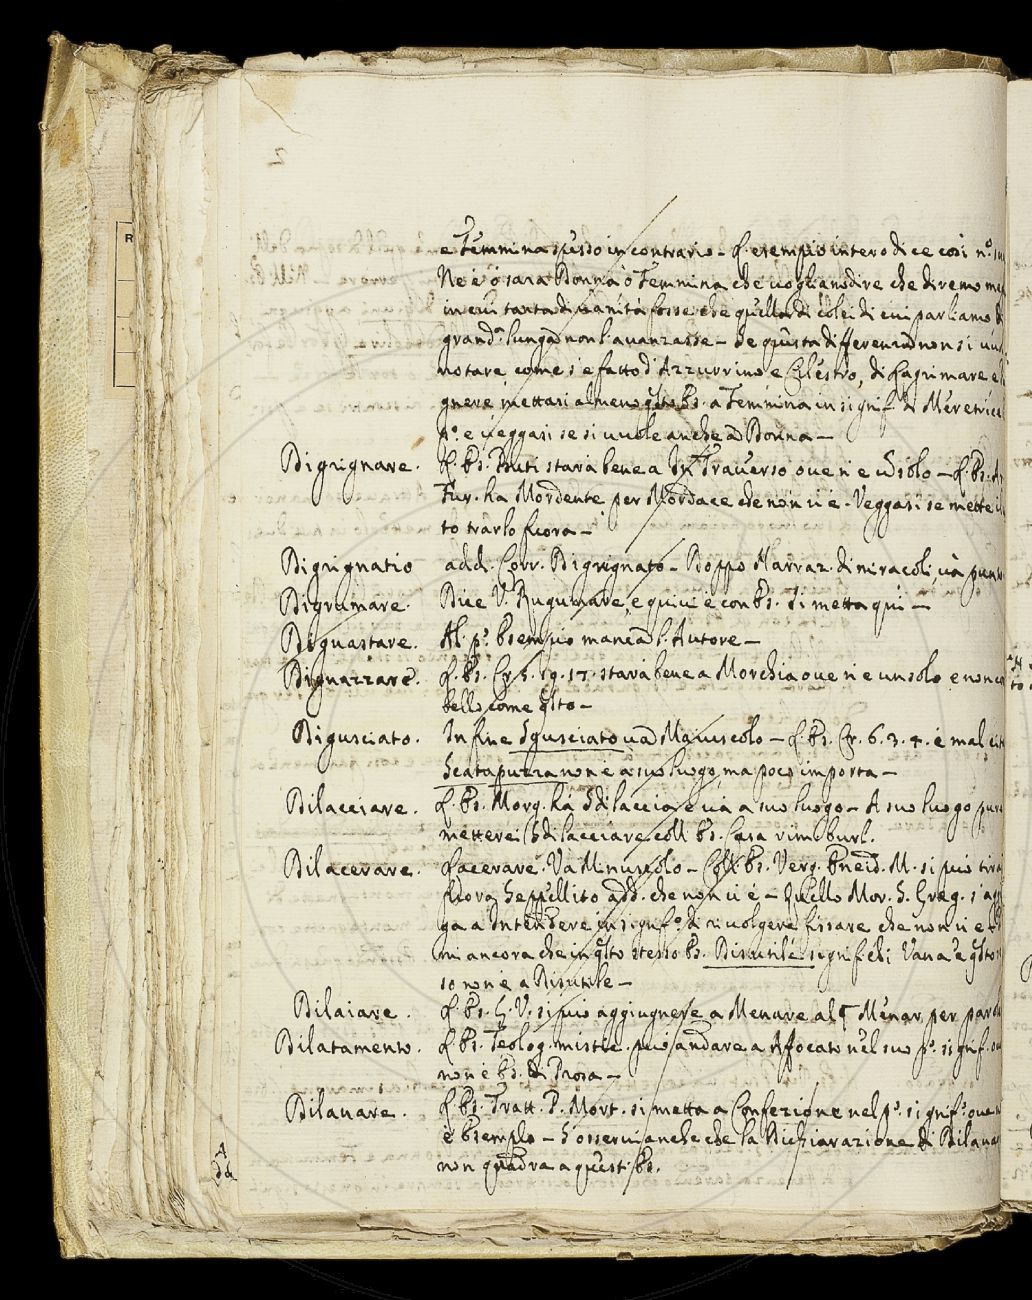 2
e Femmina spesso in contrario - L'esempio intero dice così n.º
Nè è, ò sarà Donna ò Femmina che vogliamo dire, che diremo
in cui tanta di vanità fosse che quella di colei di cui parliamo
di grand.ª lunga non l'avanzasse - Se questa differenza non si
notare come s'è fatto d'Azzurrino e Cilestro, di Lagrimare e
gnere, mettasi almeno q̃sto Es. a Femmina in signif. di Meretrice
p.º e veggasi se si vuole anche a Donna -
Digrignare. L'Es. Buti starà bene a In Traverso ove n'è uñ solo - L'Es.
Fur. ha Mordente per Mordace che non vi è - Veggasi se mette
to trarlo fuora -
Digrignatio add. Corr. Digrignato - Doppo Narraz. di miracoli, và
Digrumare. Dice V. Rugumare, e quivi è con Es. Si metta quì -
Diguastare. Al p.º Esempio manca l'Autore -
Diguazzare. L'Es. Cr. 5. 19. 17. starà bene a Morchia ove n'è un solo e non
bello come q̃sto -
R
Digusciato. In fine Sgusciato và Maiuscolo - L'Es. Cr. 6. 3. 4. è mal
Scatapuzza non è a suo luogo, ma poco importa -
Dilacciare. L'Es. Morg. hà Sdilaccia e và a suo luogo - A suo luogo
mettere Sdilacciare coll'Es. Casa rim. burl.
Dilacerare. Lacerare. Và Minuscolo - Coll'Es. Verg. Eneid. M. si può
fuora Seppellito add. che non vi è - Quello Mor. S. Greg.
ga a Intendere in signif.º di rivolgere fissare che non vi è
mi ancora che in q̃sto stesso Es. Disutile signif.
so non è a Disutile -
Dilaiare. L'Es. G. V. si può aggiugnere a Menare al ¶ Menar per
Dilatamento. L'Es. Teolog. mistic. può andare a Affocato nel suo p.º signif.
non è Es. di Prosa -
Dilavare. L'Es. Tratt. P. Mort. si metta a Confezione nel p.º signif.º
è Esemplo - S'osservi anche che la Dichiarazione di
non quadra a questi Es.